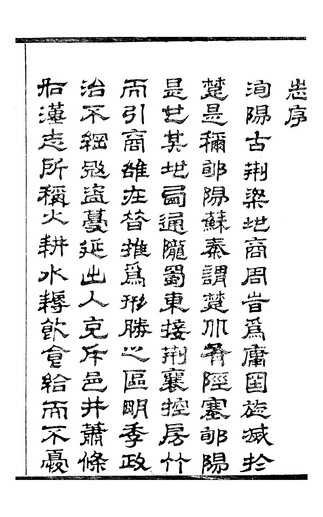 志序
洵陽古荆梁地商周皆為庸國旋滅於
楚是稱郇陽蘇秦謂楚北有陘塞郇陽
是也其地西通隴蜀東接荆襄控房竹
而引商雒在昔推為形勝之區明季政
治不綱寇盜蔓延出入充斥邑井蕭條
如漢志所稱火耕水耨飲食給而不憂